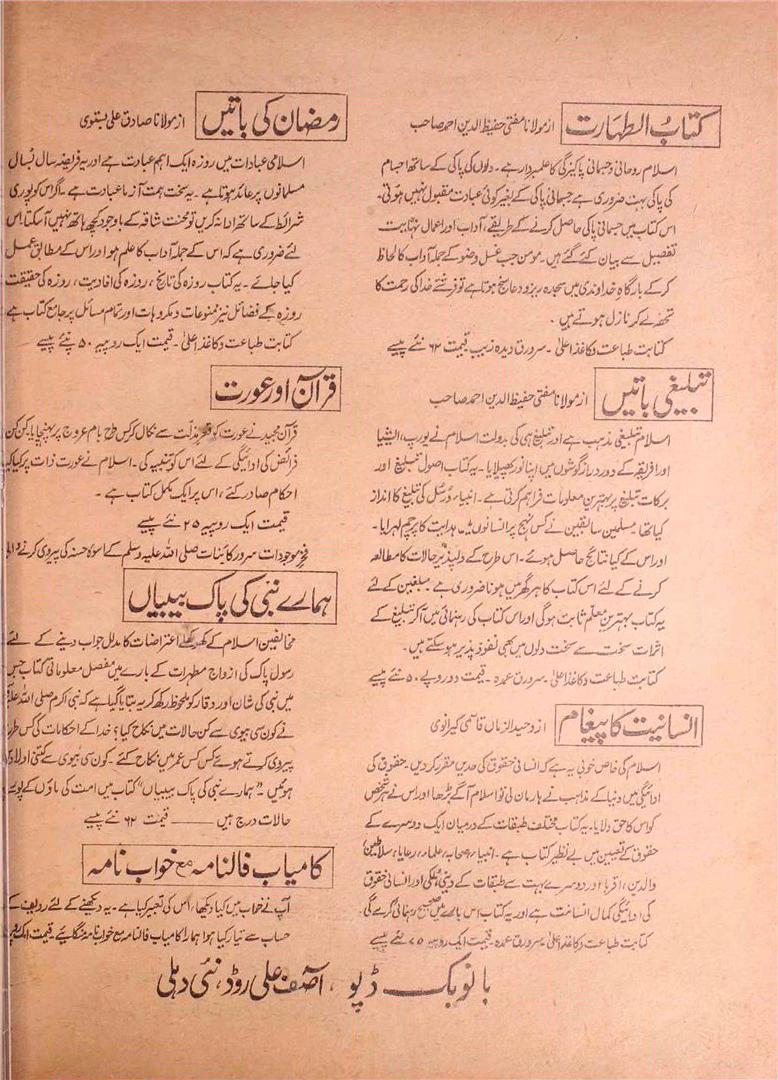 کتابُ الطہارت از مولانا مفتی حفیظ الدین احمد صاحب
اسلام روحانی و جسمانی پاکیزگی کا علمبردار ہے۔ دلوں کی پاکی کے ساتھ اجسام
کی پاکی بہت ضروری ہے جسمانی پاکی کے بغیر کوئی عبادت مقبول نہیں ہوتی۔
اس کتاب میں جسمانی پاکی حاصل کرنے کے طریقے، آداب اور اعمال نہایت
تفصیل سے بیان کئے گئے ہیں۔ مومن جب غسل وضو کے جملہ آداب کا لحاظ
کر کے بارگاہِ خداوندی میں سجدہ ریز و دعا سنج ہوتا ہے تو فرشتے خدا کی رحمت کا
تحفہ لے کر نازل ہوتے ہیں۔
کتابت طباعت و کاغذ اعلیٰ۔ سرورق دیدہ زیب قیمت ۶۲ نئے پیسے
تبلیغی باتیں از مولانا مفتی حفیظ الدین احمد صاحب
اسلام تبلیغی مذہب ہے اور تبلیغ ہی کی بدولت اسلام نے یورپ، ایشیا
اور افریقہ کے دور دراز گوشوں میں اپنا نور پھیلایا۔ یہ کتاب اصول تبلیغ اور
برکات تبلیغ پر بہترین معلومات فراہم کرتی ہے۔ انبیاء و رُسل کی تبلیغ کا انداز
کیا تھا، مسلمین سابقین نے کس نہج پر انسانوں میں ہدایت کا پرچم لہرایا۔
اور اس کے کیا نتائج حاصل ہوئے۔ اس طرح کے دلپذیر حالات کا مطالعہ
کرنے کے لئے اس کتاب کا ہر گھر میں ہونا ضروری ہے مبلغین کے لئے
یہ کتاب بہترین معلّم ثابت ہوگی اور اس کتاب کی رہنمائی میں آکر تبلیغ کے
اثرات سخت سے سخت دلوں میں بھی نفوذ پذیر ہوسکتے ہیں۔
کتابت طباعت و کاغذ اعلیٰ۔ سرورق عمدہ۔ قیمت دو روپے ۵۰ نئے پیسے
انسانیت کا پیغام از وحید الزماں قاسمی کیرانوی
اسلام کی خاص خوبی یہ ہے کہ انسانی حقوق کی حدیں مقرر کردیں۔ حقوق کی
ادائیگی میں دنیا کے مذاہب نے ہار مان لی تو اسلام آگے بڑھا اور اس نے ہر شخص
کو اس کا حق دلایا۔ یہ کتاب مختلف طبقات کے درمیان ایک دوسرے کے
حقوق کے تعیین میں بے نظیر کتاب ہے۔ انبیاء، صحابہ، علماء، رعایا، سلاطین
والدین، اقربا اور دوسرے بہت سے طبقات کے دینی، مُلکی اور انسانی حقوق
کی ادائیگی کمال انسانیت ہے اور یہ کتاب اس بارے میں صحیح رہنمائی کرے گی
کتابت طباعت و کاغذ اعلیٰ، سرورق عمدہ۔ قیمت ایک روپیہ ۷۵ نئے پیسے
رمضان کی باتیں از مولانا صادق علی بستوی
اسلامی عبادات میں روزہ ایک اہم عبادت ہے اور یہ فریضہ سال بسال
مسلمانوں پر عائد ہوتا ہے۔ یہ سخت ہمت آزما عبادت ہے۔ اگر اس کو پوری
شرائط کے ساتھ ادا نہ کریں تو محنت شاقہ کے باوجود کچھ ہاتھ نہیں آسکتا۔ اس
لئے ضروری ہے کہ اس کے جملہ آداب کا علم ہو اور اس کے مطابق عمل
کیا جائے۔ یہ کتاب روزہ کی تاریخ، روزہ کی افادیت، روزہ کی حقیقت
روزہ کے فضائل نیز ممنوعات و مکروہات اور تمام مسائل پر جامع کتاب ہے
کتابت طباعت و کاغذ اعلیٰ۔ قیمت ایک روپیہ ۵۰ نئے پیسے
قرآن اور عورت
قرآن مجید نے عورت کو قعر مذلّت سے نکال کر کس طرح بام عروج پر پہنچایا۔ کن کن
فرائض کی ادائیگی کے لئے اس کو تنبیہ کی۔ اسلام نے عورت ذات پر کیا کیا
احکام صادر کئے، اس پر ایک مکمل کتاب ہے۔
قیمت ایک روپیہ ۲۵ نئے پیسے
فخر موجودات سرور کائنات صلی اللہ علیہ وسلم کے اسوۂ حسنہ کی پیروی کرنے والی
ہمارے نبی کی پاک بیبیاں
مخالفین اسلام کے کھوکھلے اعتراضات کا مدلل جواب دینے کے لئے
رسول پاک کی ازواج مطہرات کے بارے میں مفصل معلوماتی کتاب جس
میں نبی کی شان اور وقار کو ملحوظ رکھ کر یہ بتایا گیا ہے کہ نبی اکرم صلی اللہ علیہ
نے کون سی بیوی سے کن حالات میں نکاح کیا؟ خدا کے احکامات کی کس طرح
پیروی کرتے ہوئے کس کس عمر میں نکاح کئے۔ کون سی بیوی سے کتنی اولادیں
ہوئیں۔ "ہمارے نبی کی پاک بیبیاں" کتاب میں امت کی ماؤں کے پورے
حالات درج ہیں ——— قیمت ۶۲ نئے پیسے
کامیاب فالنامہ مع خواب نامہ
آپ نے خواب میں کیا دیکھا، اُس کی تعبیر کیا ہے۔ یہ دیکھنے کے لئے ردیف کے
حساب سے تیار کیا ہوا ہمارا کامیاب فالنامہ مع خواب نامہ منگائیے۔ قیمت ایک روپیہ
بانو بک ڈپو، آصف علی روڈ، نئی دہلی